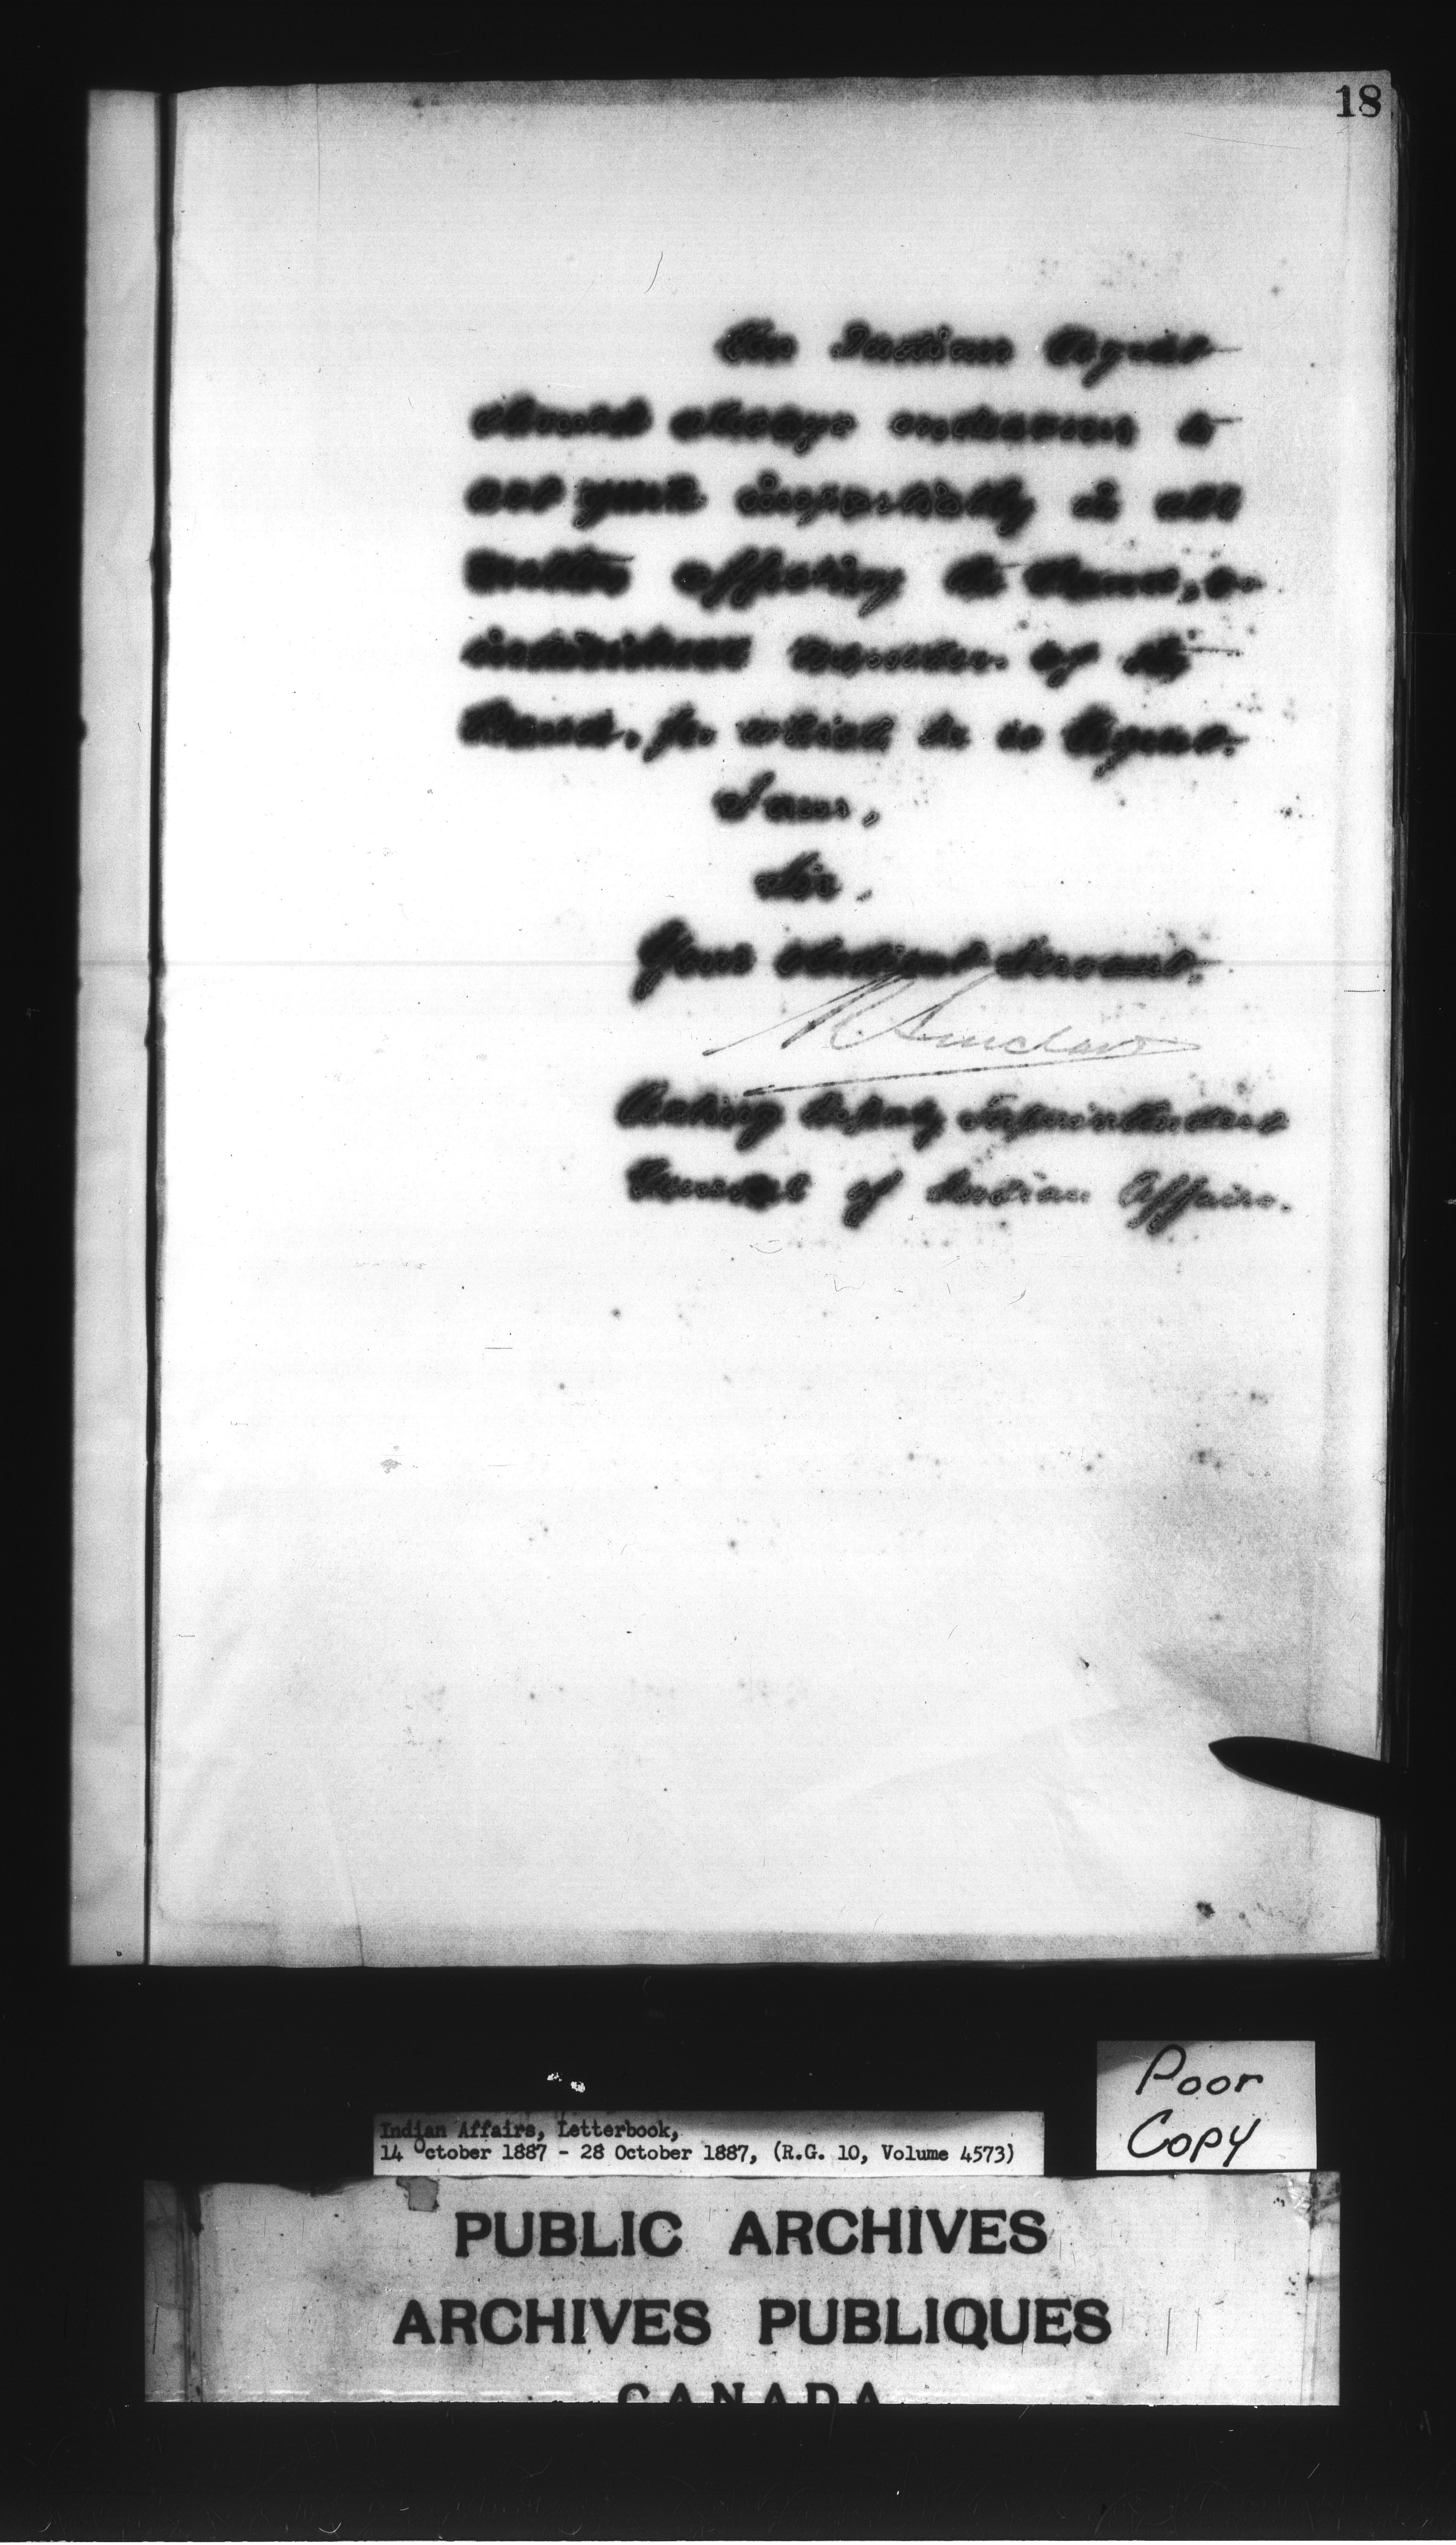 18
An Indian Agent
should always endeavour to
act quite impartially in all
matters affecting the Band, or
individual members of the
Band, for which he is Agent.
I am,
Sir,
Your obedient Servant,
R Sinclair
Acting Deputy Superintendent
General of Indian Affairs.
Poor
Copy
Indian Affairs, Letterbook,
14 October 1887 - 28 October 1887, (R.G. 10, Volume 4573)
PUBLIC ARCHIVES
ARCHIVES PUBLIQUES
CANADA